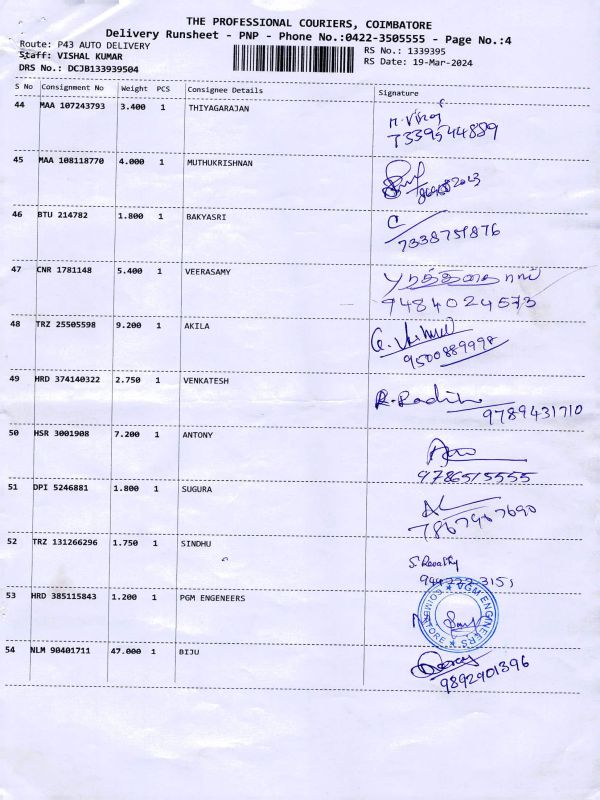 THE PROFESSIONAL COURIERS, COIMBATORE
Delivery Runsheet - PNP - Phone No.:0422-3505555 - Page No.:4
Route: P43 AUTO DELIVERY
RS No.: 1339395
Staff: VISHAL KUMAR
RS Date: 19-Mar-2024
DRS No.: DCJB133939504
S No Consignment No Weight PCS Consignee Details Signature
44 MAA 107243793 3.400 1 THIYAGARAJAN
7339544889
45 MAA 108118770 4.000 1 MUTHUKRISHNAN
46 BTU 214782 1.800 1 BAKYASRI
7338751876
47 CNR 1781148 5.400 1 VEERASAMY
9484024573
48 TRZ 25505598 9.200 1 AKILA
9500889998
49 HRD 374140322 2.750 1 VENKATESH
9789431710
50 HSR 3001908 7.200 1 ANTONY
9786515555
51 DPI 5246881 1.800 1 SUGURA
52 TRZ 131266296 1.750 1 SINDHU
53 HRD 385115843 1.200 1 PGM ENGENEERS
VGM ENGINEERS ★ COIMBATORE ★
54 NLM 90401711 47.000 1 BIJU
9892901396